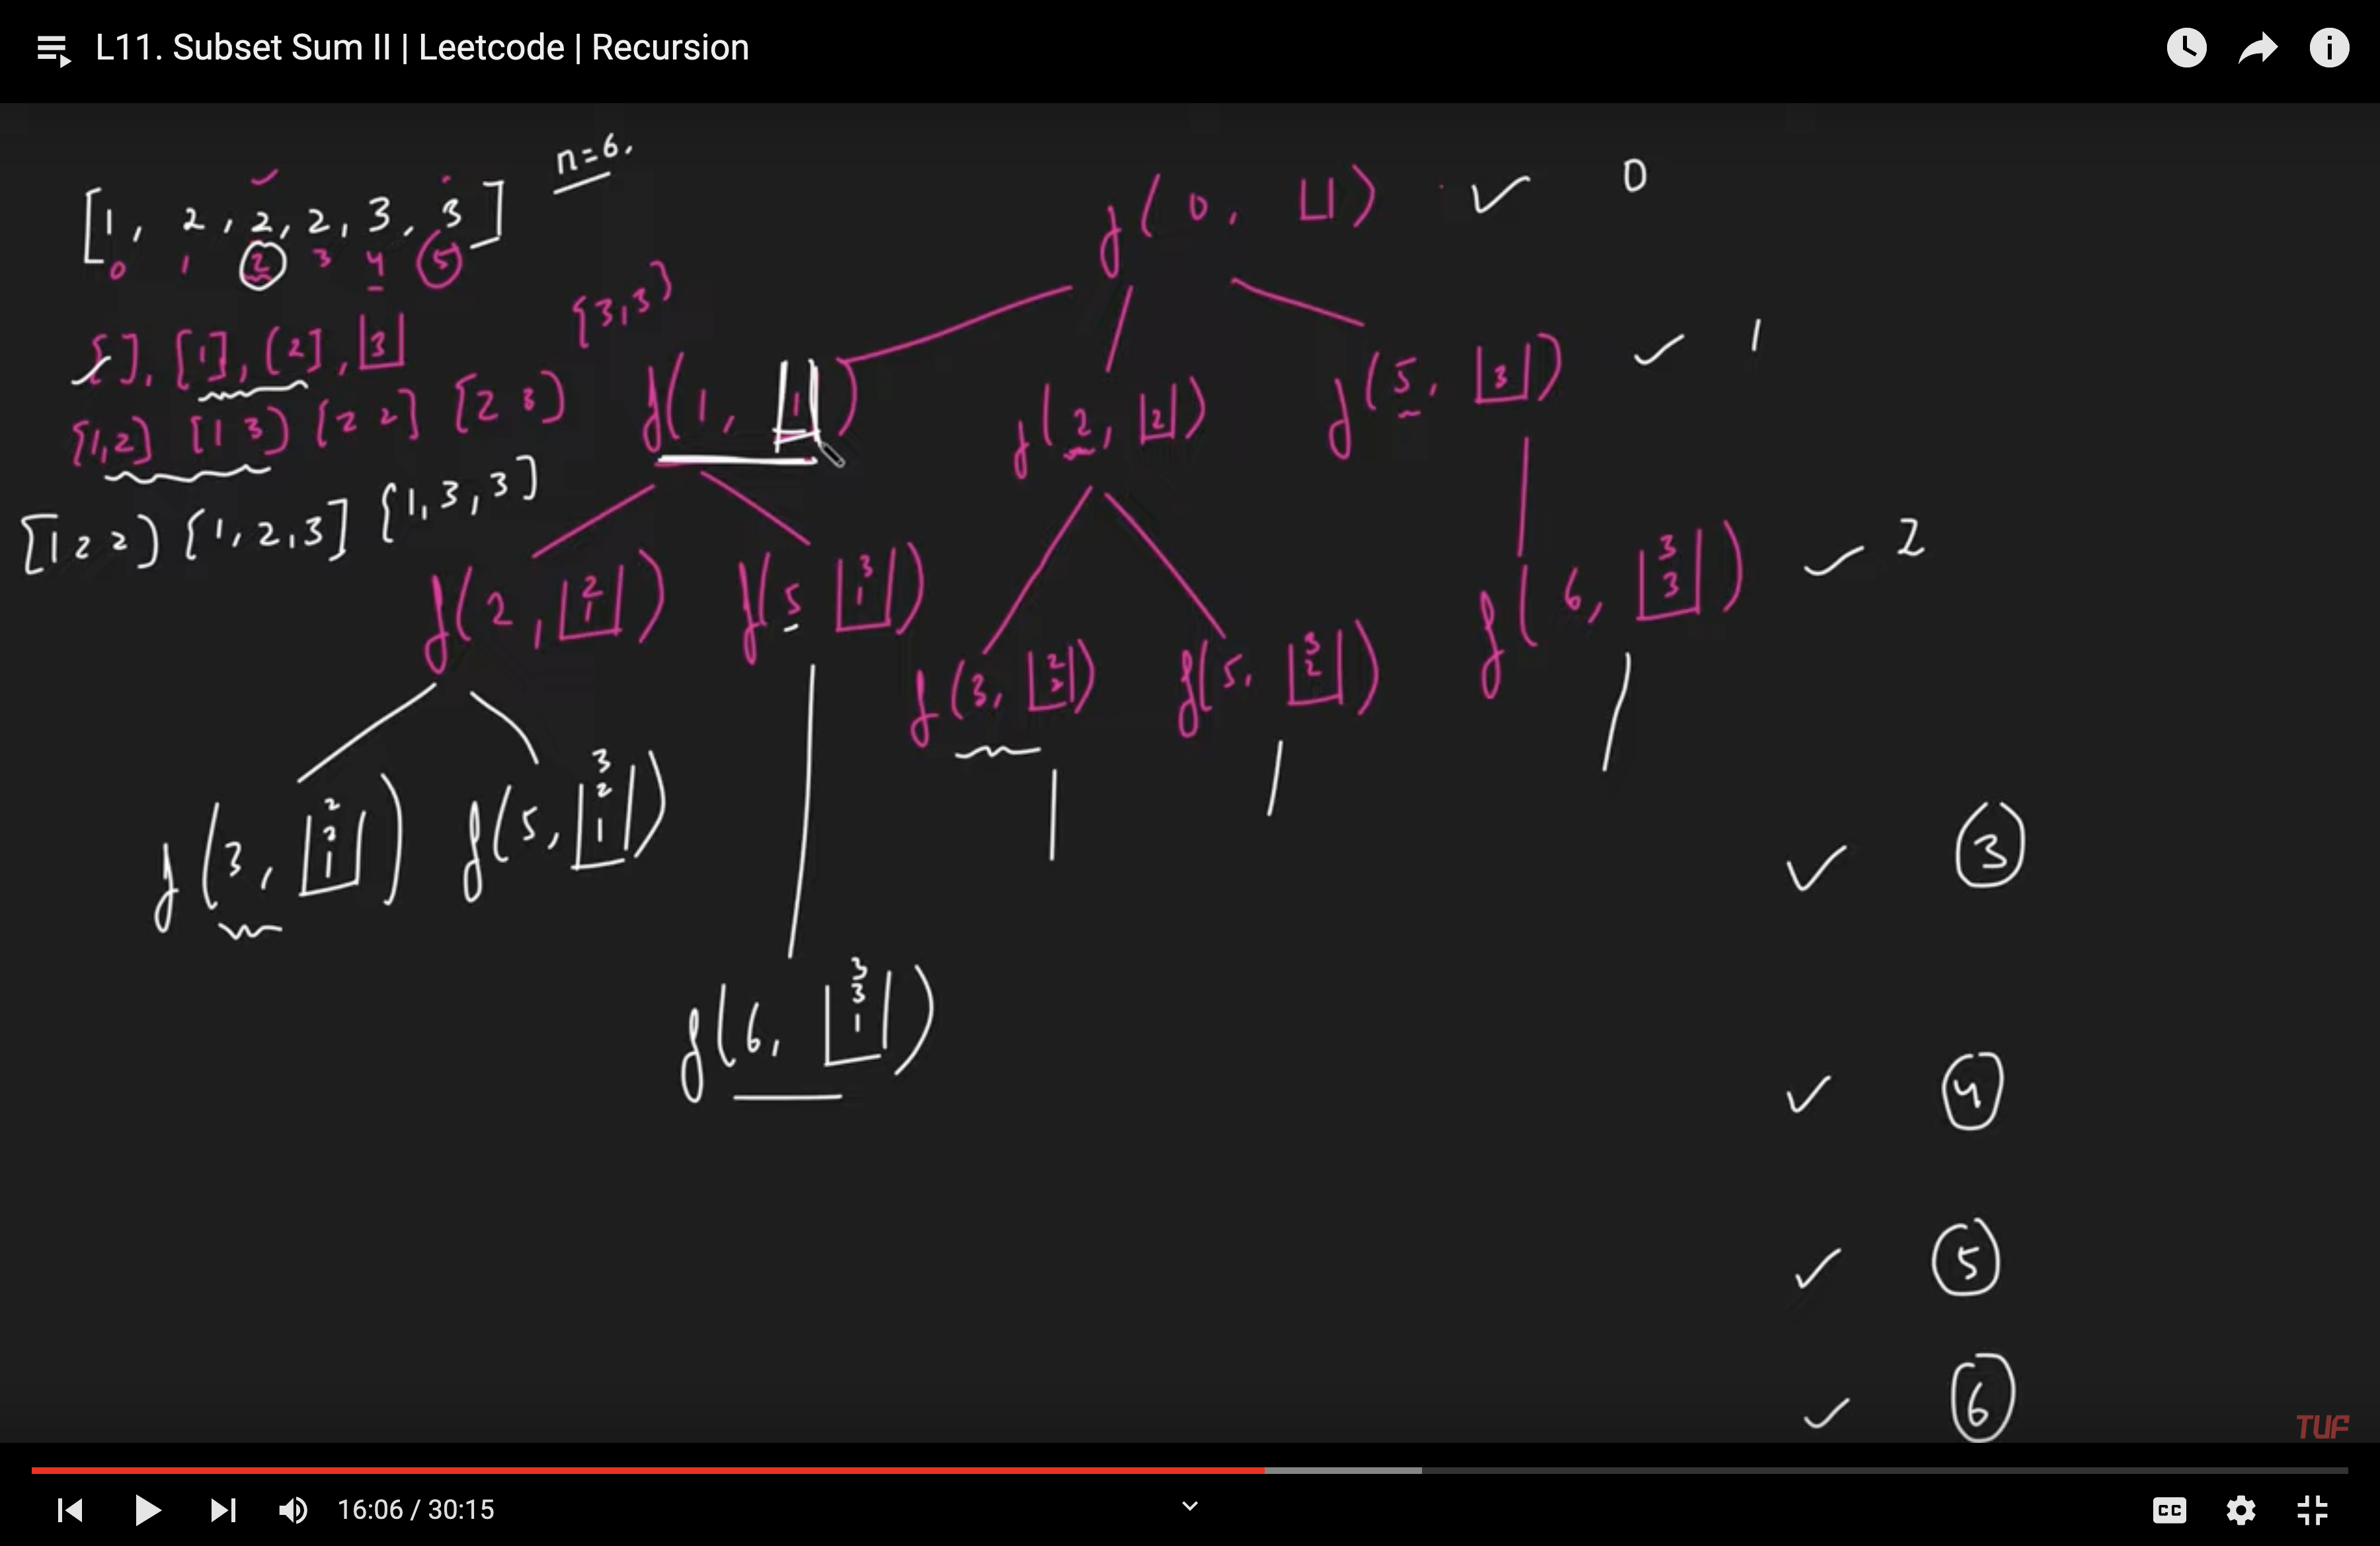 L11. Subset Sum II | Leetcode | Recursion
[1, 2, 2, 2, 3, 3] n=6.
0 1 2 3 4 5
[ ], [1], [2], [3]
{3,3}
[1,2] [1 3] [2 2] [2 3]
[1 2 2] [1,2,3] [1,3,3]
f(0, [ ]) ✓ 0
f(1, [1]) f(2, [2]) f(5, [3]) ✓ 1
f(2, [2 1]) f(5 [3 1]) f(3, [2 2]) f(5, [3 2]) f(6, [3 3]) ✓ 2
f(3, [2 2 1]) f(5, [3 2 1]) ✓ 3
f(6, [3 3 1]) ✓ 4
✓ 5
✓ 6
TUF
16:06 / 30:15
CC